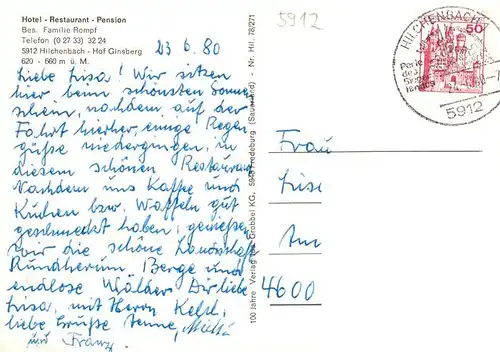 Hotel - Restaurant - Pension
Bes. Familie Rompf
Telefon (0 27 33) 32 24
5912 Hilchenbach - Hof Ginsberg
620 - 660 m ü. M.
23. 6. 80
Liebe Lisa! Wir sitzen
hier beim schönsten Sonnen
schein, nachdem auf der
Fahrt hierher, einige Regen
güße niedergingen, in
diesem schönen Restaurant
Nachdem uns Kaffe und
Kuchen bzw. Waffeln gut
geschmeckt haben, genießen
wir die schöne Landschaft
Rundherum, Berge und
endlose Wälder. Dir liebe
Lisa, mit Herrn
liebe Grüße Änne,
und Franz
100 Jahre Verlag Grobbel KG, 5948 Fredeburg (Sauerland) - Nr. Hil. 78/271
5912
HILCHENBACH
Perle
des
Sieger
landes
5912
50
Frau
Lise
Am
4600